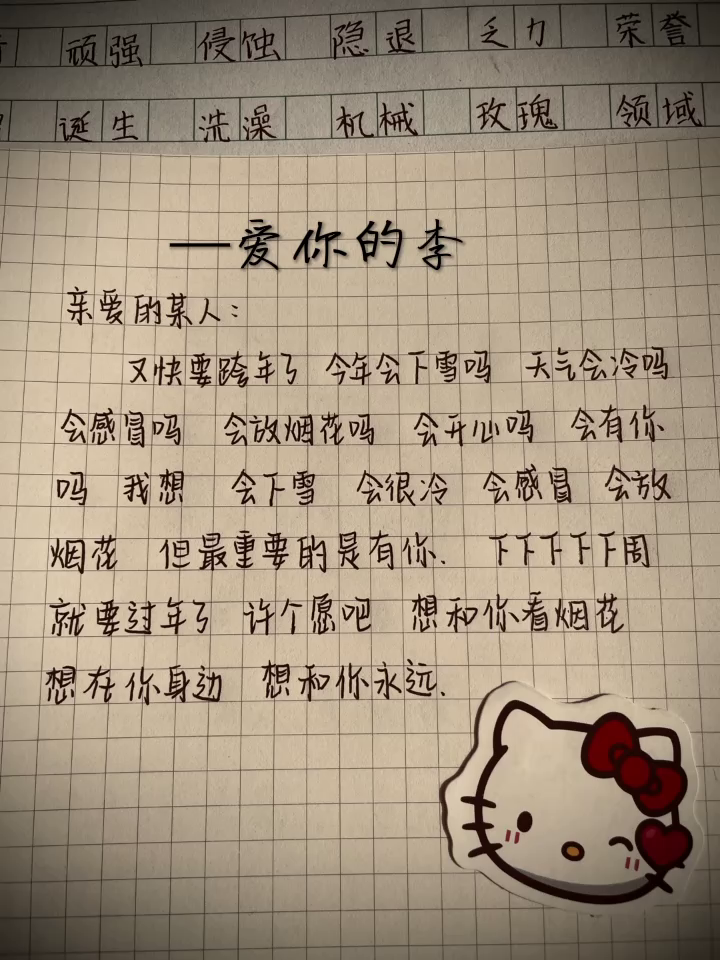 顽强 侵蚀 隐退 乏力 荣誉
诞生 洗澡 机械 玫瑰 领域
—爱你的李
亲爱的某人:
又快要跨年了 今年会下雪吗 天气会冷吗
会感冒吗 会放烟花吗 会开心吗 会有你
吗 我想 会下雪 会很冷 会感冒 会放
烟花 但最重要的是有你. 下下下下下周
就要过年了 许个愿吧 想和你看烟花
想在你身边 想和你永远.